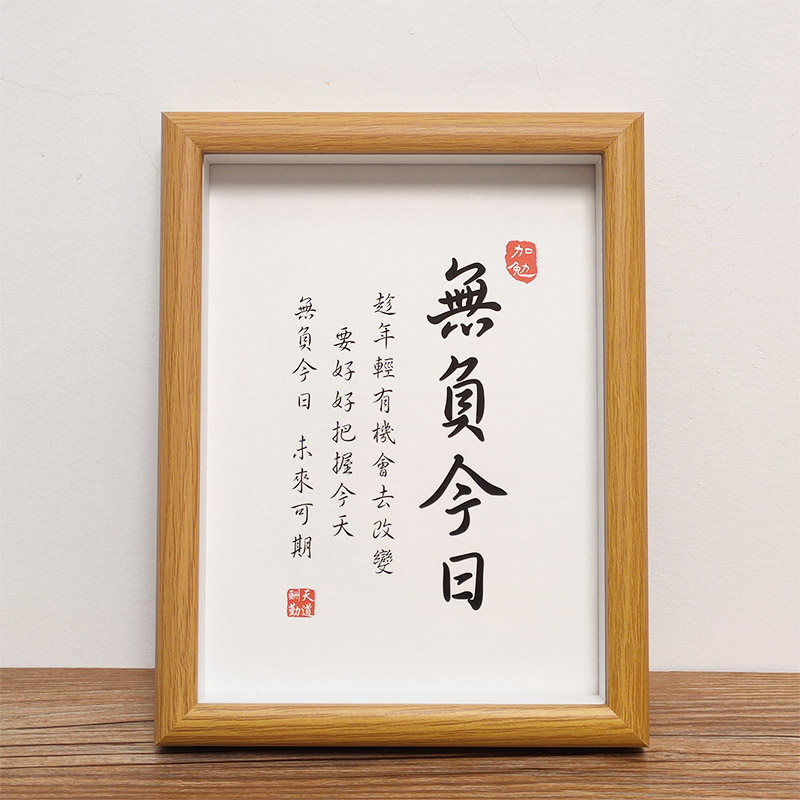 加勉
無負今日
趁年輕有機會去改變
要好好把握今天
無負今日 未來可期
天道酬勤